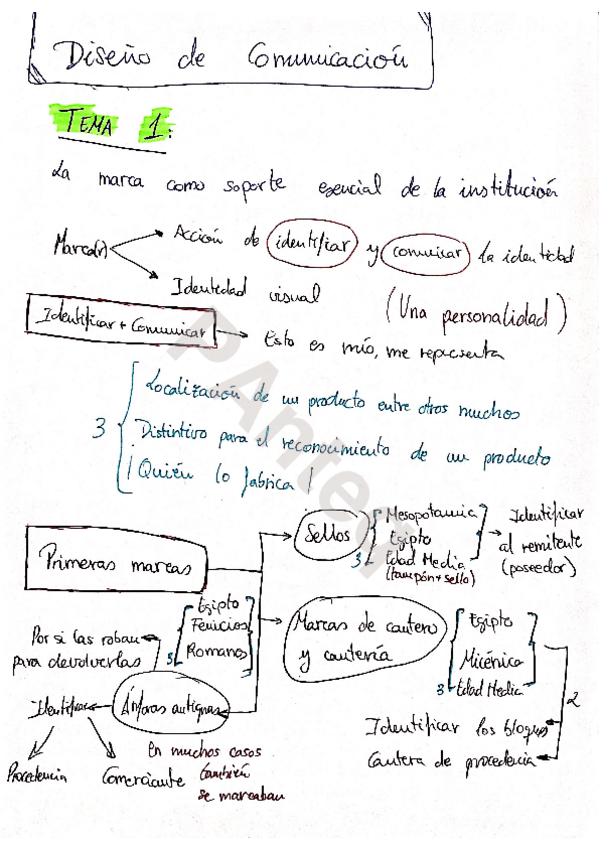 Diseño de Comunicación
TEMA 1:
La marca como soporte esencial de la institución
Marca(r)
Acción de identificar y comunicar la identidad
Identidad visual
(Una personalidad)
Identificar + Comunicar
Esto es mío, me representa
3
Localización de un producto entre otros muchos
Distintivo para el reconocimiento de un producto
¡Quién lo fabrica!
Primeras marcas
Sellos
3
Mesopotamia
Egipto
Edad Media
(tampón + sello)
Identificar
al remitente
(poseedor)
Marcas de cantero
y cantería
3
Egipto
Micénica
Edad Media
2
Identificar los bloques
Cantera de procedencia
Ánforas antiguas
3
Egipto
Fenicios
Romanos
Por si las roban
para devolverlas
Identificar
Procedencia
Comerciante
En muchos casos
también
se marcaban
PAntea